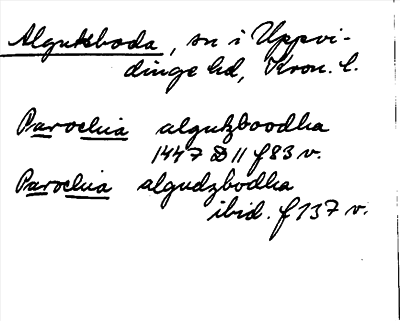 Algutsboda, sn i Uppvi-
dinge hd, Kron. l.
Parochia algutzboodha
1447 D 11 f 83 v.
Parochia algudzbodha
ibid. f 137 v.